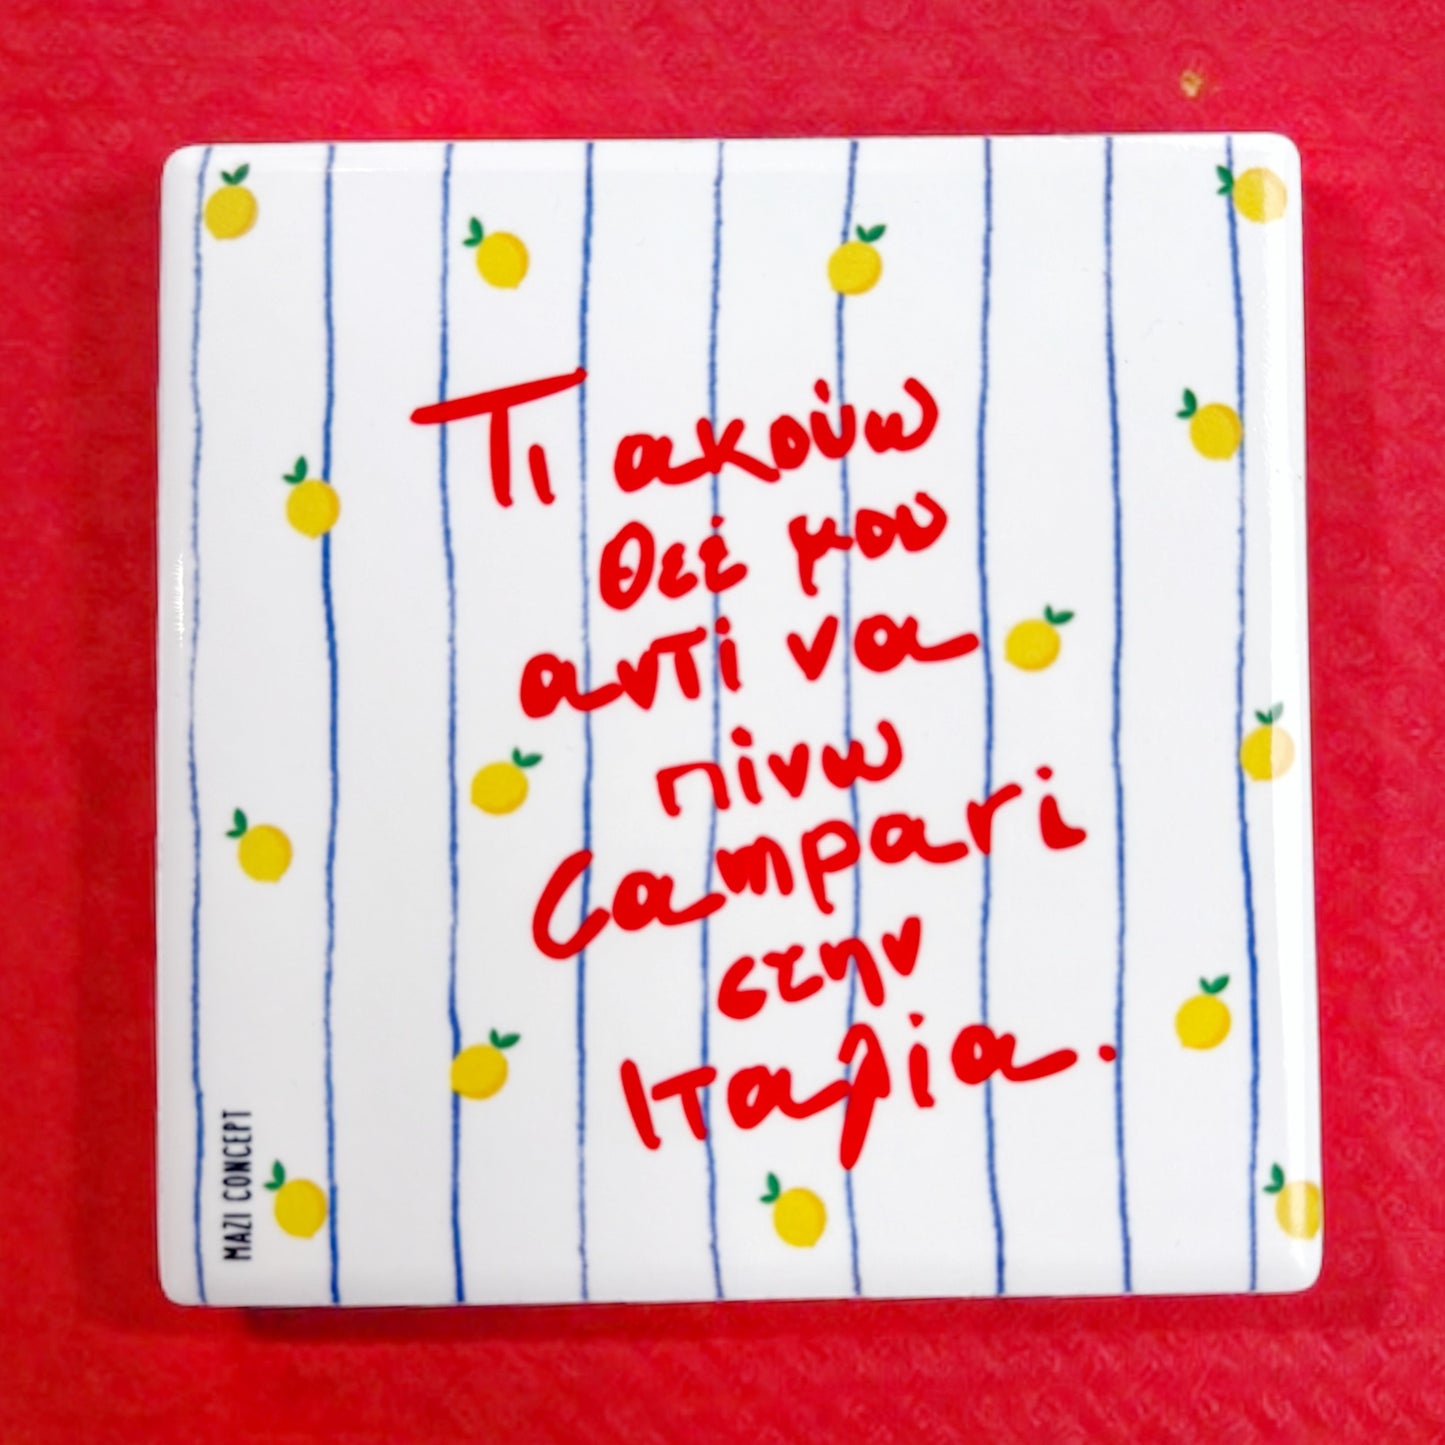 Τι ακούω
θεέ μου
αντί να
πίνω
Campari
στην
Ιταλία.
MAZI CONCEPT